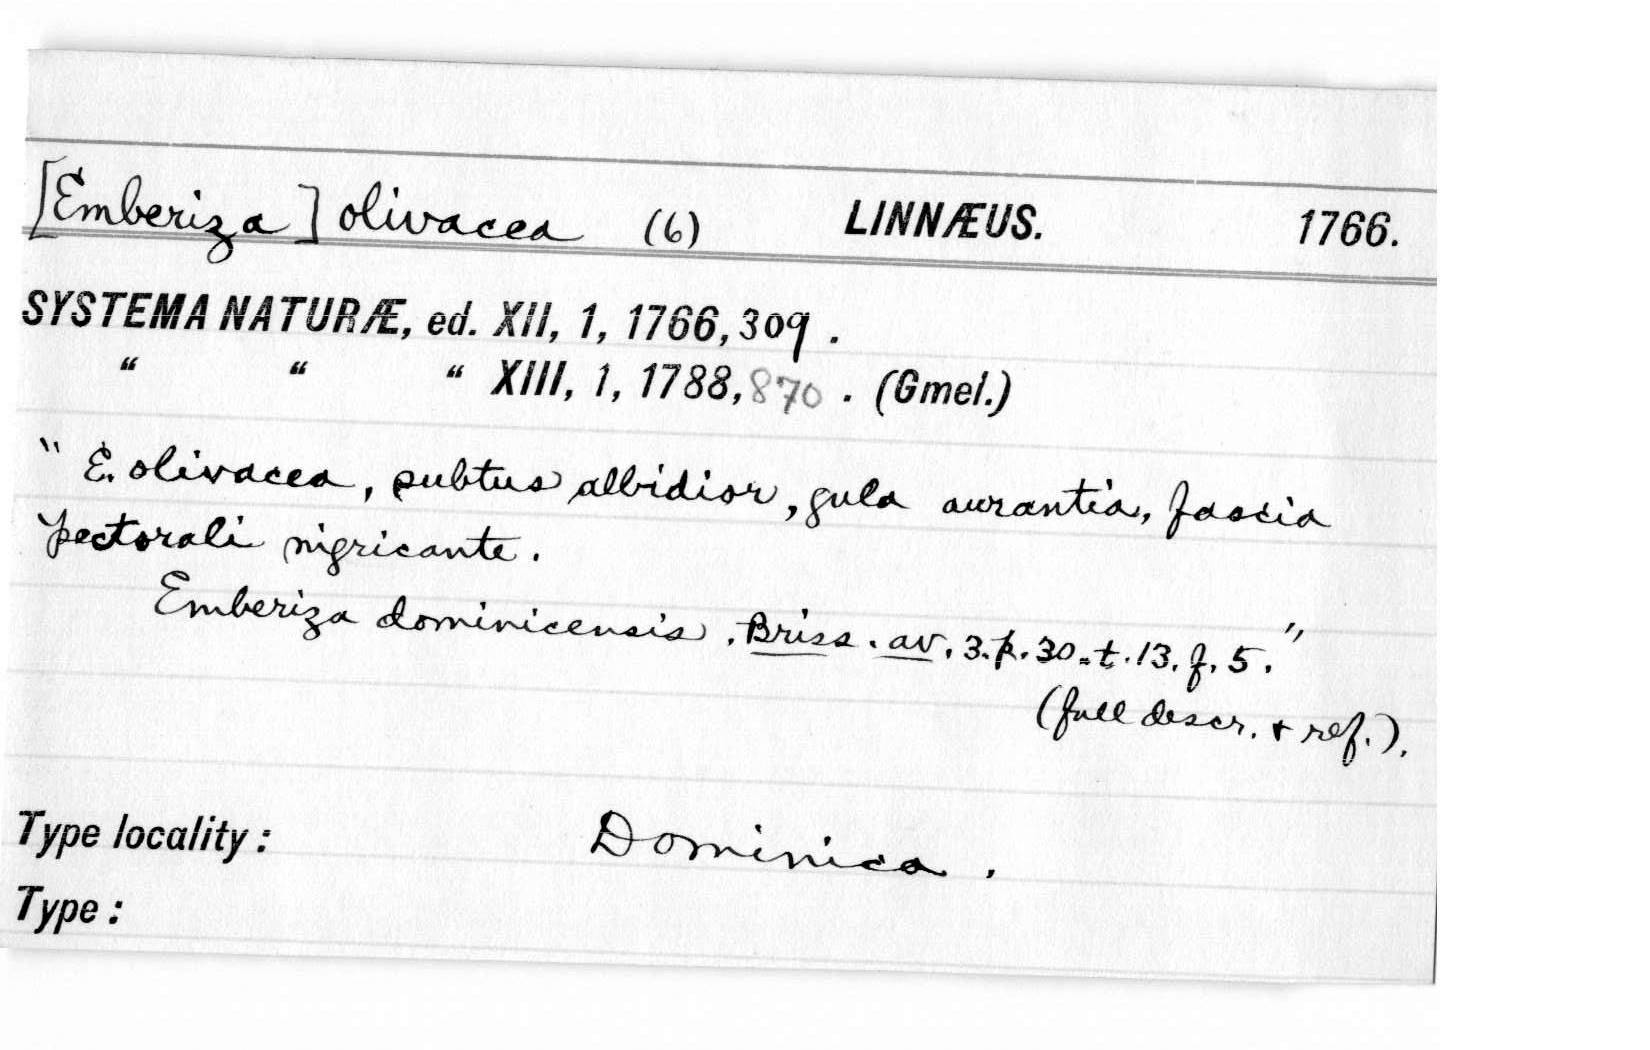 [Emberiza] olivacea (6) LINNÆUS. 1766.
SYSTEMA NATURÆ, ed. XII, 1, 1766, 309.
“ “ “ XIII, 1, 1788, 870. (Gmel.)
" E. olivacea, subtus albidior, gula aurantia, fascia
pectorali nigricante.
Emberiza dominicensis. Briss. av. 3. p. 30. t. 13. f. 5."
(full descr. + ref.).
Type locality: Dominica.
Type: